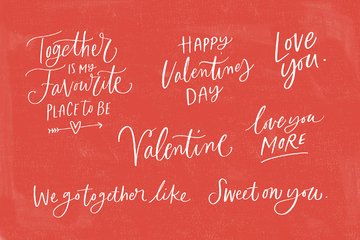 Together
IS MY
Favourite
PLACE TO BE
HAPPY
Valentines
DAY
Love
You.
Valentine
love you
MORE
We go together like
Sweet on you.